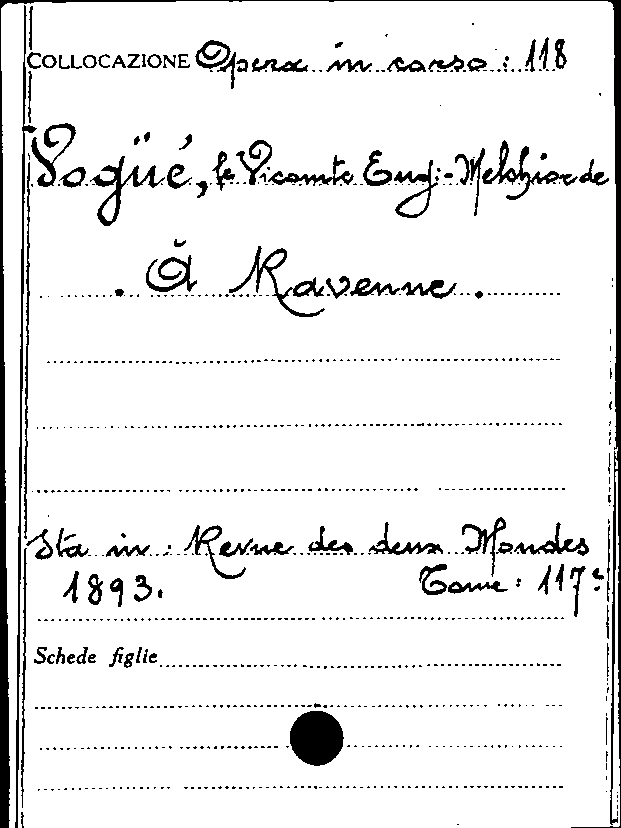 COLLOCAZIONE Opera in corso : 118
Vogüé, le Vicomte Eug:-Melchior de
. À Ravenne .
Sta in : Revue des deux Mondes
1893. Tome : 117e
Schede figlie